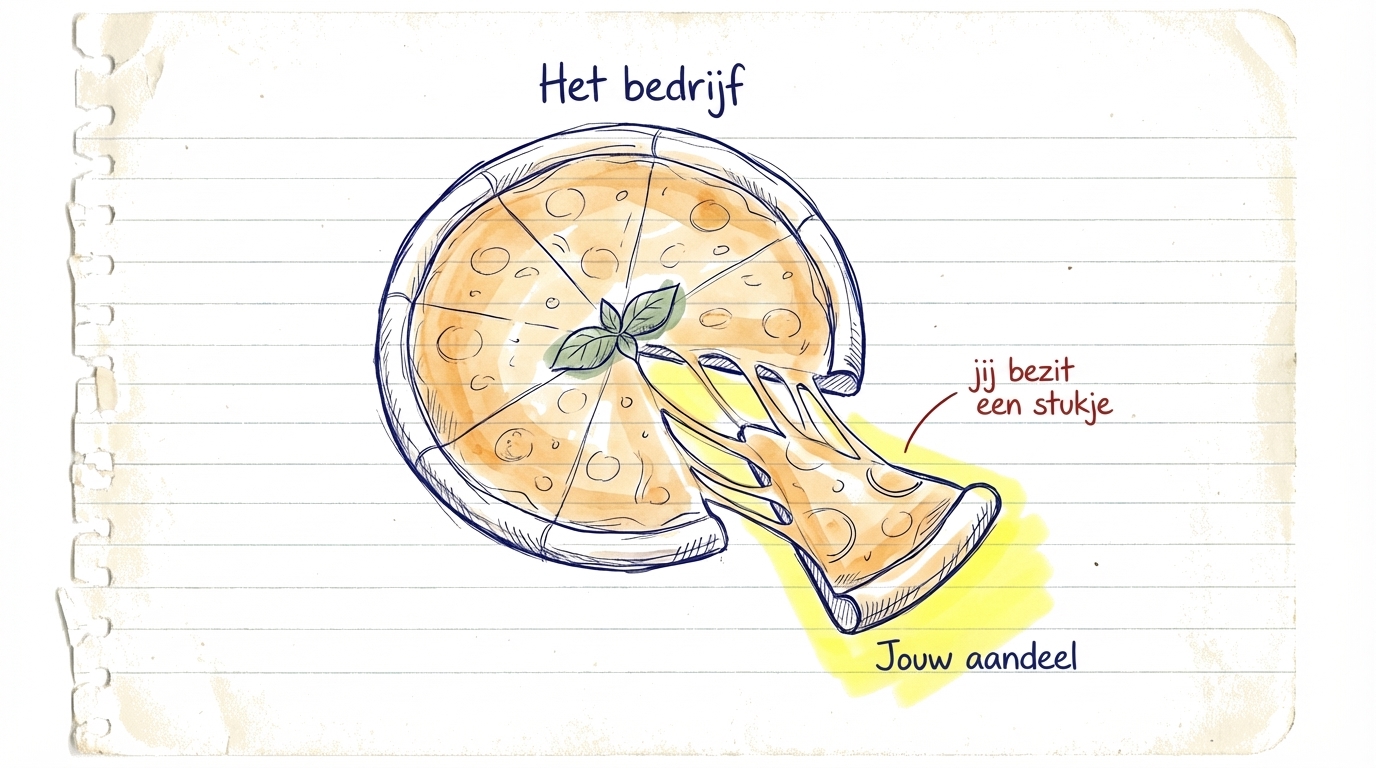 Het bedrijf
jij bezit
een stukje
Jouw aandeel